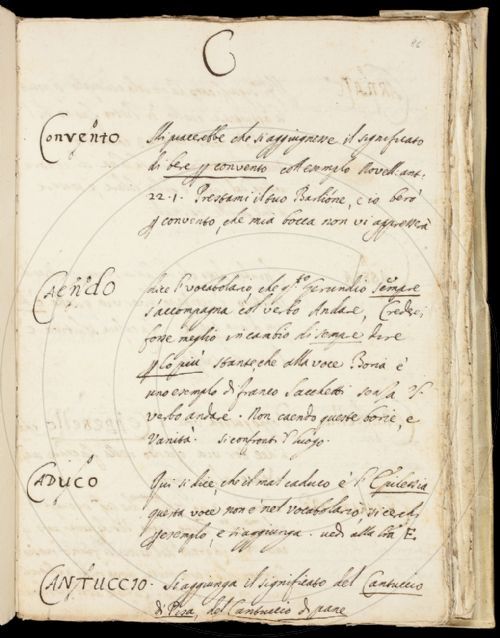 C
Convento Mi piacerebbe che si aggiugnesse il significato
di bere p convento coll esempio Novell. ant.
22.1. Prestami il tuo Barlione, e io berò
p convento, che mia bocca non vi appresserà
Caendo Dice l' vocabolario, che q.to Gerundio sempre
s'accompagna col verbo Andare, Crederei
forse meglio in cambio di sempre dire
p lo più stante che alla voce Boria è
uno esempio di franco Sacchetti senza l'
verbo andare. Non caendo queste borie, e
vanità. si confronti l' luogo.
CADUCO Qui si dice, che il mal caduco è l' Epilessia
questa voce non è nel vocabolario, si cerchi
p esempio e si aggiunga. vedi alla E.
CANTUCCIO. Si aggiunga il significato del Cantuccio
di Pisa, del Cantuccio di pane